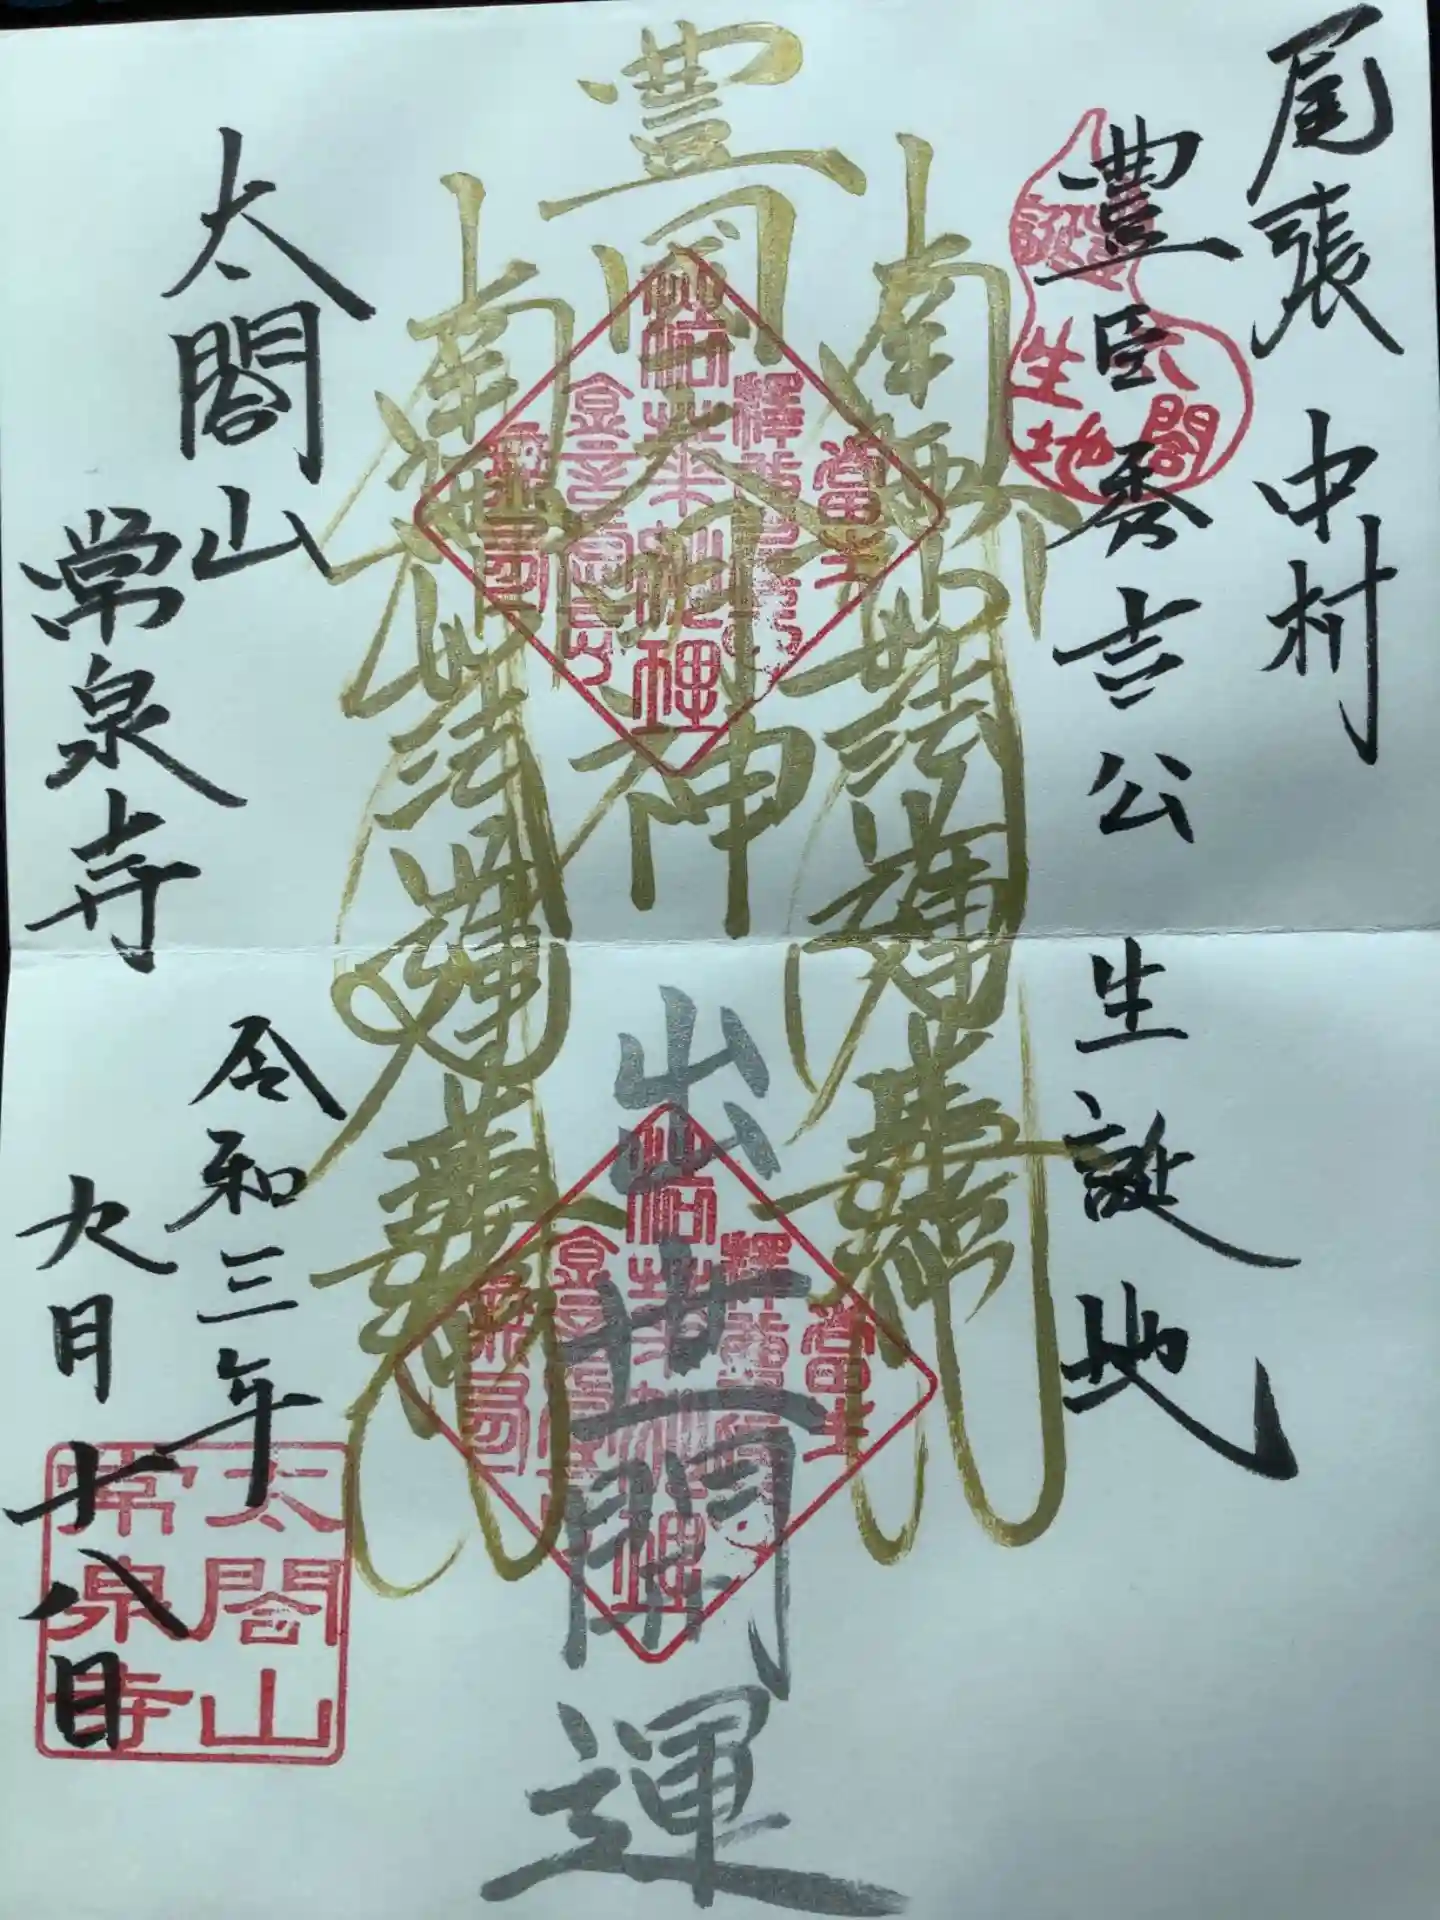 尾張 中村
豊臣秀吉公 生誕地
太閤
誕生地
南無妙法蓮華経
豊国大明神
南無妙法蓮華経
出世開運
太閤山
常泉寺
令和三年
九月十八日
太閤山
常泉寺